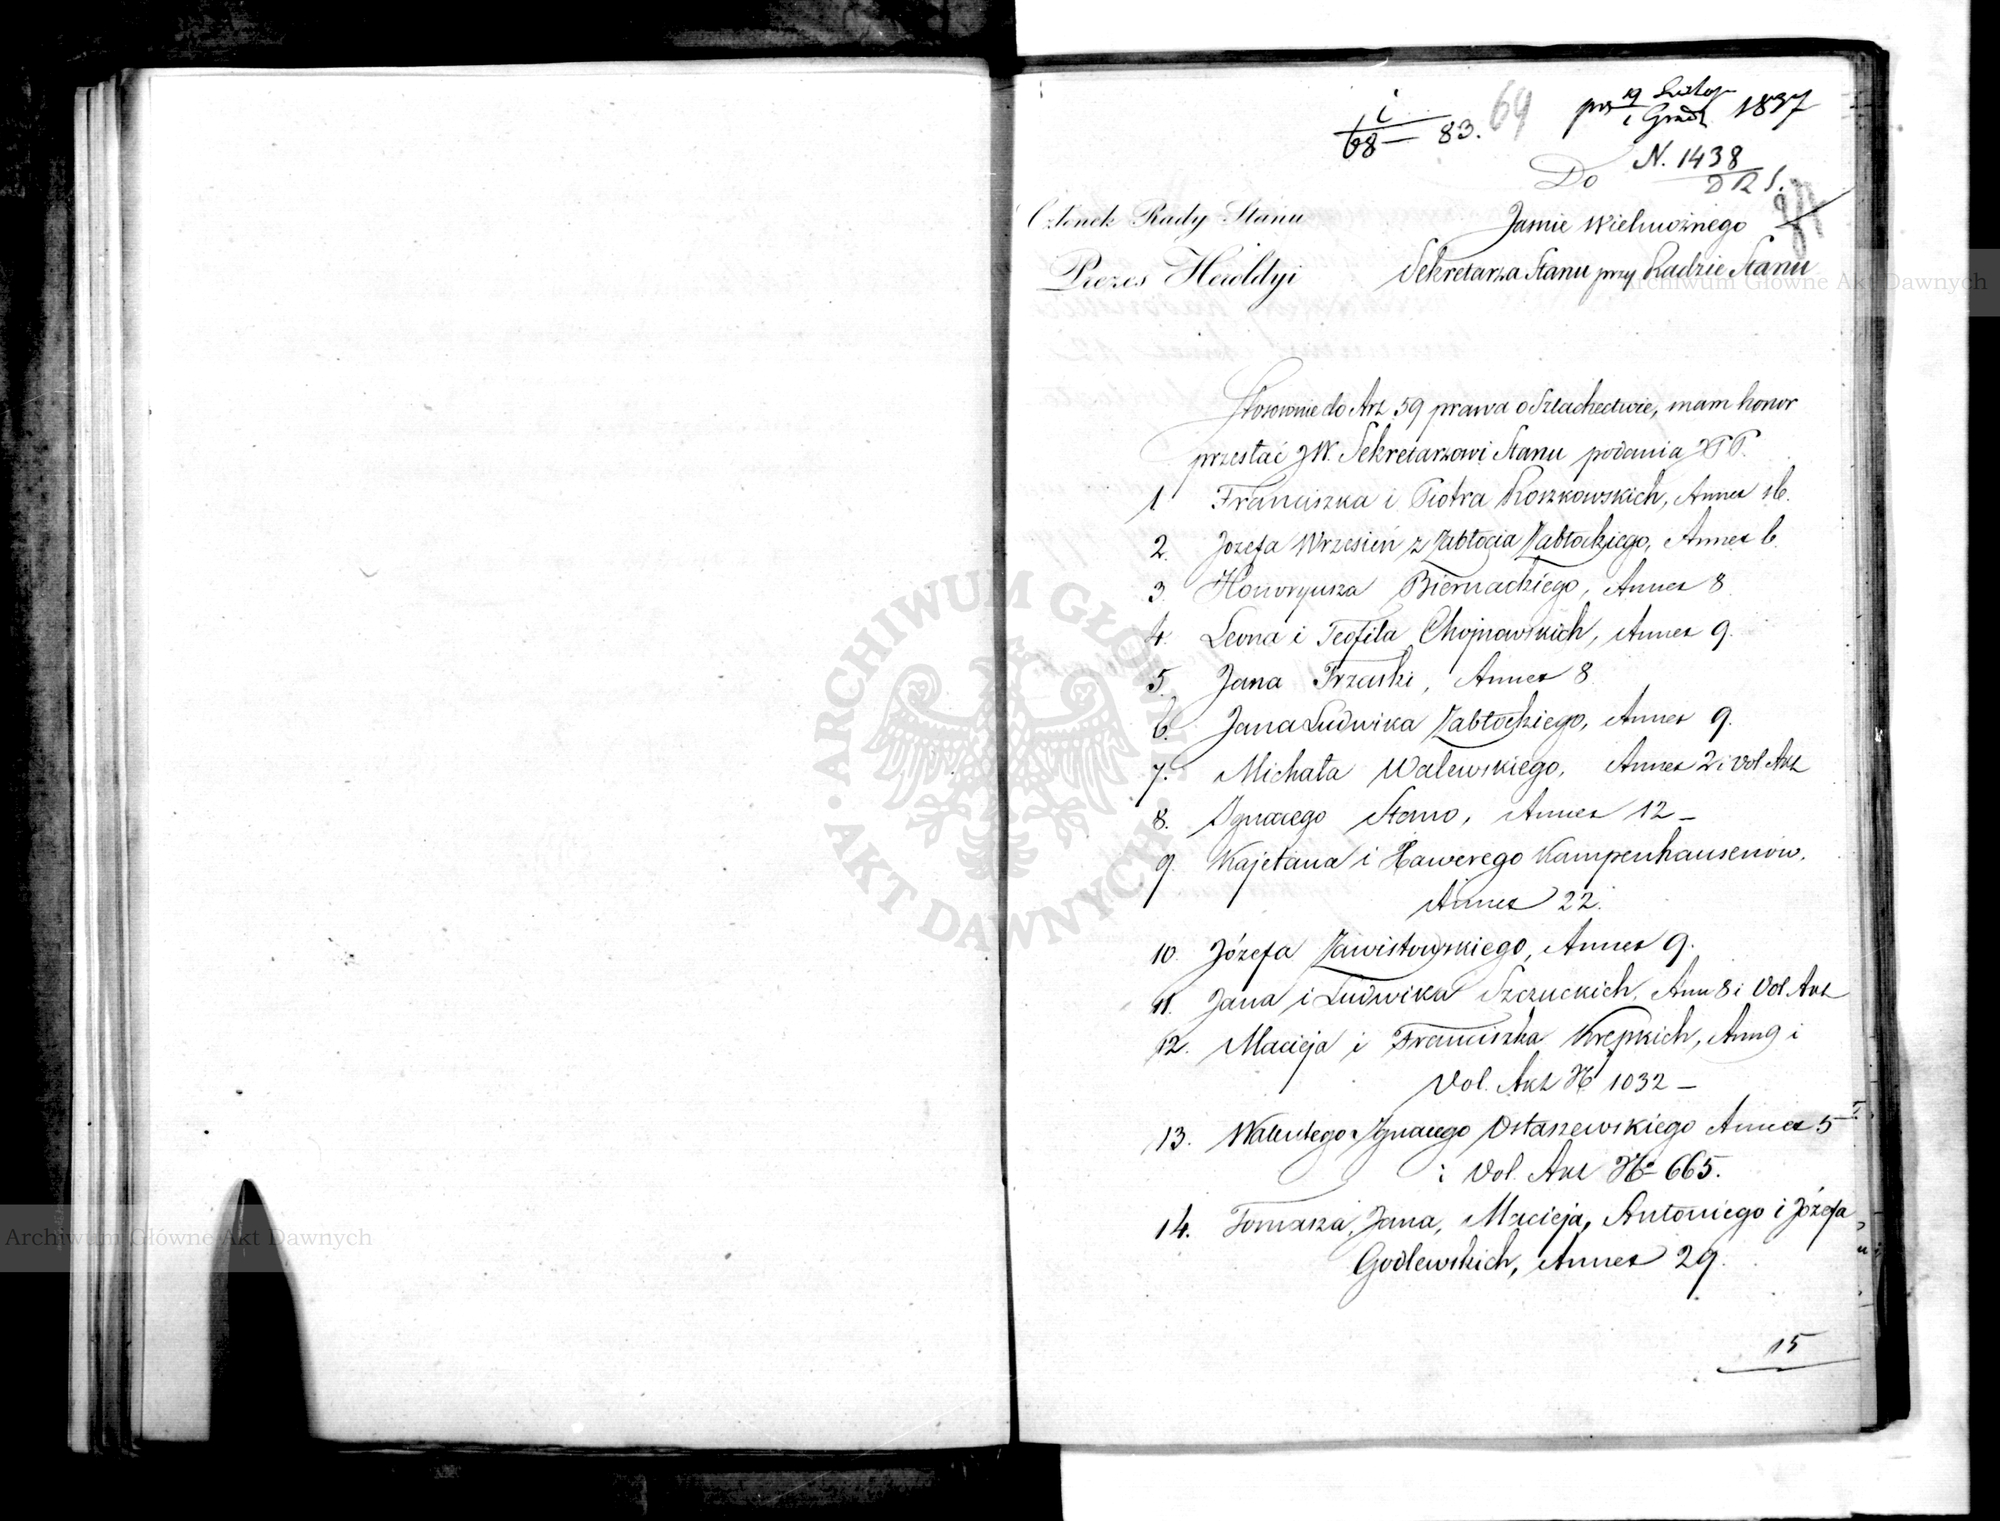 i
68 — 83. 69
prs 19 Listop 1837
1 Grud
N. 1438
D R S.
Do
Członek Rady Stanu
Jaśnie Wielmożnego
Prezes Heroldyi
Sekretarza Stanu przy Radzie Stanu
Stosownie do Art 59 prawa o Szlachectwie, mam honor
przesłać JW. Sekretarzowi Stanu podania
1 Franciszka i Piotra Roszkowskich, Annex 16.
2. Jozefa Wrzesień z Zabłocia Zabłockiego, Annex 6.
3. Honoryusza Biernackiego, Annex 8
4. Leona i Teofila Chojnowskich, Annex 9.
5. Jana Trzaski, Annex 8
6. Jana Ludwika Zabłockiego, Annex 9.
7. Michała Walewskiego, Annex 2 i Vol. Akt
8. Ignacego Stamo, Annex 12 —
9. Kajetana i Xawerego Kampenhausenów.
Annex 22.
10. Józefa Zawistowskiego, Annex 9.
11. Jana i Ludwika Szczuckich, Ann 8 i Vol. Akt
12. Macieja i Franciszka Krępskich, Ann 9 i
Vol. Akt N 1032 —
13. Walentego Ignacego Ostaszewskiego Annex 5
i Vol. Akt No 665.
14. Tomasza, Jana, Macieja, Antoniego i Józefa
Godlewskich, Annex 29.
15
ARCHIWUM GŁÓWNE AKT DAWNYCH
Archiwum Główne Akt Dawnych
Archiwum Główne Akt Dawnych